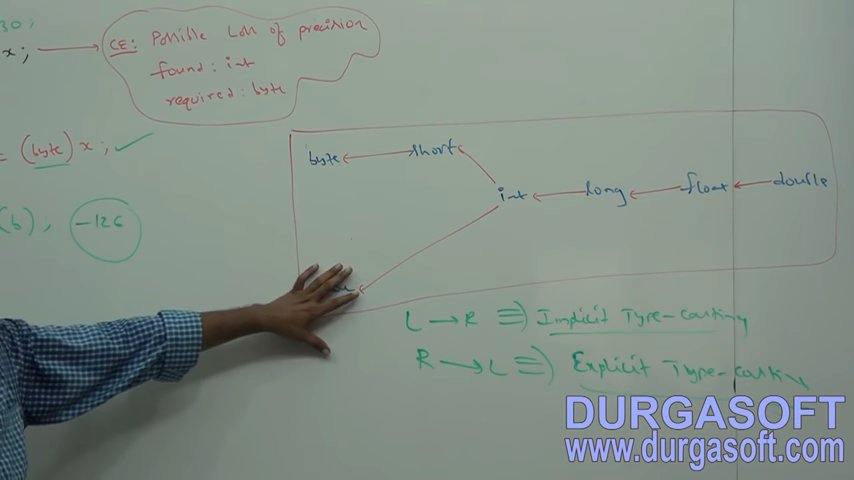 30;
x;
CE: Possible Loss of precision
found: int
required: byte
= (byte) x;
(b); -126
byte short
int long float double
L → R ⇒ Implicit Type-casting
R → L ⇒ Explicit Type-casting
DURGASOFT
www.durgasoft.com